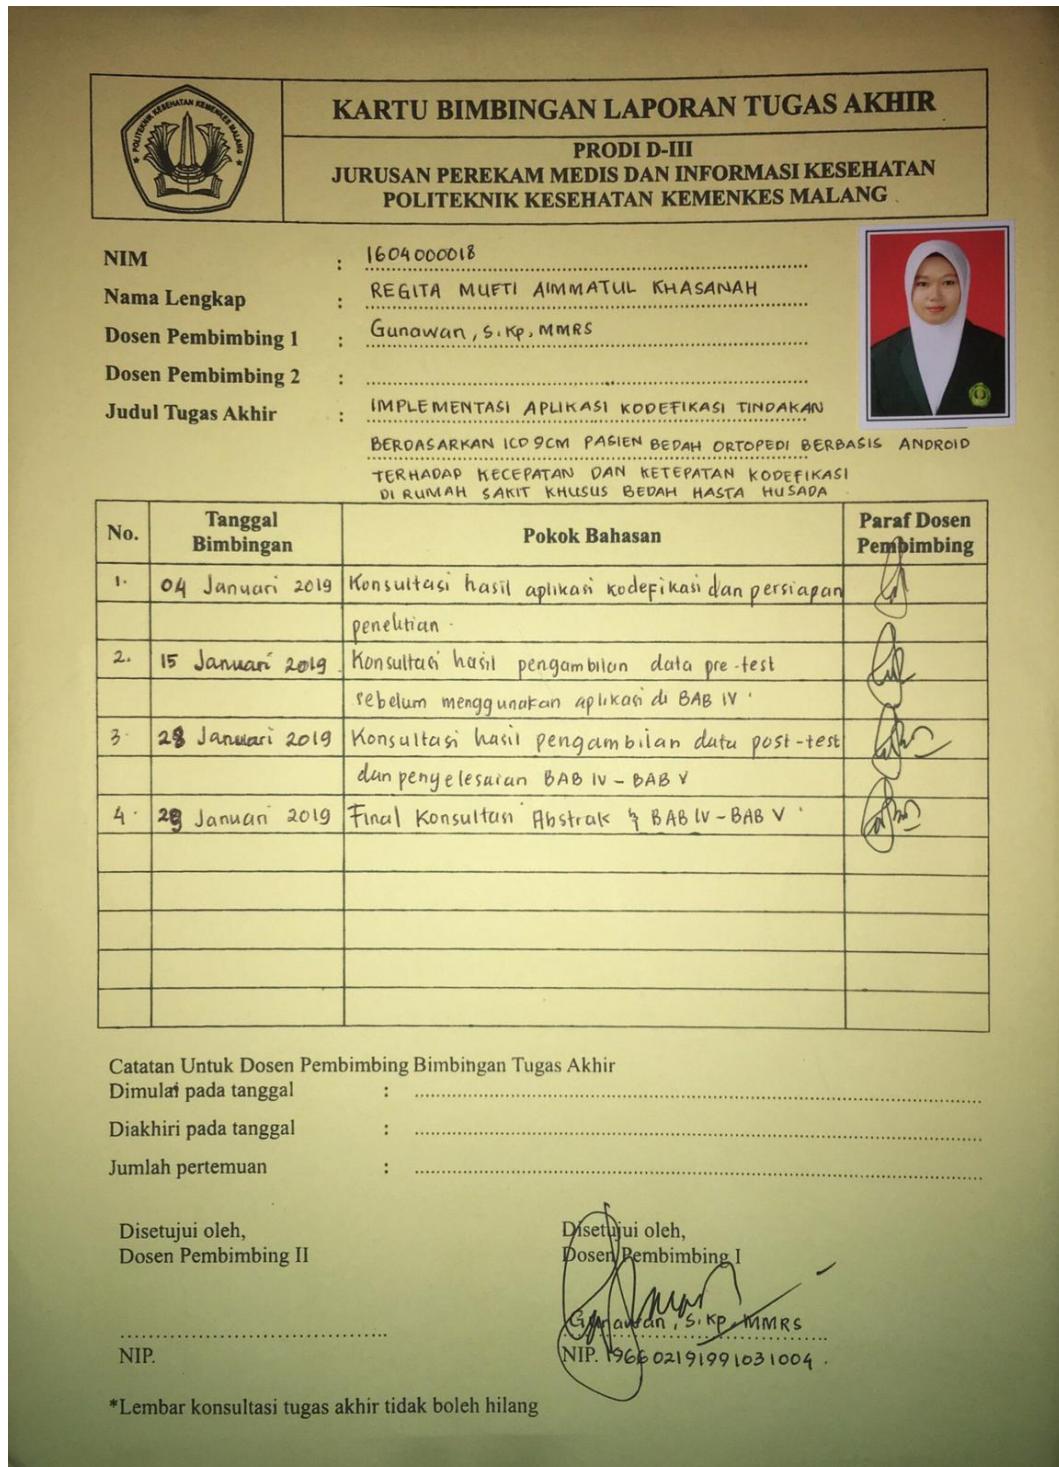 POLITEKNIK KESEHATAN KEMENKES MALANG
KARTU BIMBINGAN LAPORAN TUGAS AKHIR
PRODI D-III
JURUSAN PEREKAM MEDIS DAN INFORMASI KESEHATAN
POLITEKNIK KESEHATAN KEMENKES MALANG
NIM : 1604000018
Nama Lengkap : REGITA MUFTI AIMMATUL KHASANAH
Dosen Pembimbing 1 : Gunawan, S.Kp, MMRS
Dosen Pembimbing 2 :
Judul Tugas Akhir : IMPLEMENTASI APLIKASI KODEFIKASI TINDAKAN
BERDASARKAN ICD 9CM PASIEN BEDAH ORTOPEDI BERBASIS ANDROID
TERHADAP KECEPATAN DAN KETEPATAN KODEFIKASI
DI RUMAH SAKIT KHUSUS BEDAH HASTA HUSADA
No. Tanggal Bimbingan Pokok Bahasan Paraf Dosen Pembimbing
1. 04 Januari 2019 Konsultasi hasil aplikasi kodefikasi dan persiapan
penelitian.
2. 15 Januari 2019 Konsultasi hasil pengambilan data pre-test
sebelum menggunakan aplikasi di BAB IV
3. Januari 2019 Konsultasi hasil pengambilan data post-test
dan penyelesaian BAB IV - BAB V
4. Januari 2019 Final Konsultasi Abstrak & BAB IV - BAB V
Catatan Untuk Dosen Pembimbing Bimbingan Tugas Akhir
Dimulai pada tanggal :
Diakhiri pada tanggal :
Jumlah pertemuan :
Disetujui oleh, Disetujui oleh,
Dosen Pembimbing II Dosen Pembimbing I
Gunawan, S.Kp, MMRS
NIP. NIP. 196602191991031004.
*Lembar konsultasi tugas akhir tidak boleh hilang